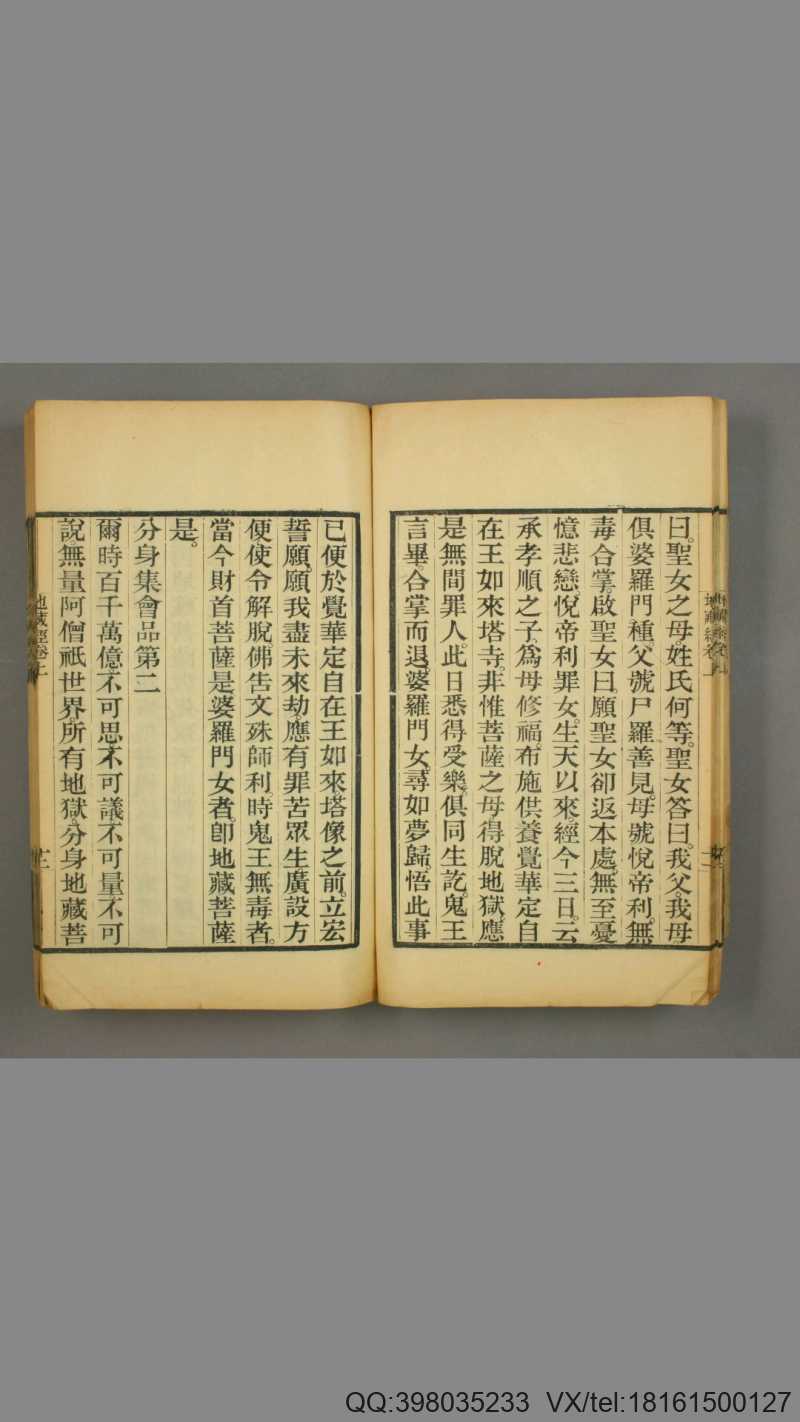 曰。聖女之母。姓氏何等。聖女答曰。我父我母
俱婆羅門種。父號尸羅善見。母號悅帝利。無
毒合掌。啟聖女曰。願聖女卻返本處。無至憂
憶悲戀。悅帝利罪女。生天以來。經今三日。云
承孝順之子。為母修福。布施供養覺華定自
在王如來塔寺。非惟菩薩之母。得脫地獄。應
是無間罪人。此日悉得受樂。俱同生訖。鬼王
言畢。合掌而退。婆羅門女。尋如夢歸。悟此事
已。便於覺華定自在王如來塔像之前。立宏
誓願。願我盡未來劫。應有罪苦眾生。廣設方
便。使令解脫。佛告文殊師利。時鬼王無毒者。
當今財首菩薩是。婆羅門女者。卽地藏菩薩
是。
分身集會品第二
爾時百千萬億不可思不可議不可量不可
說無量阿僧祇世界所有地獄。分身地藏菩
地藏經卷上
十二
QQ:398035233 VX/tel:18161500127